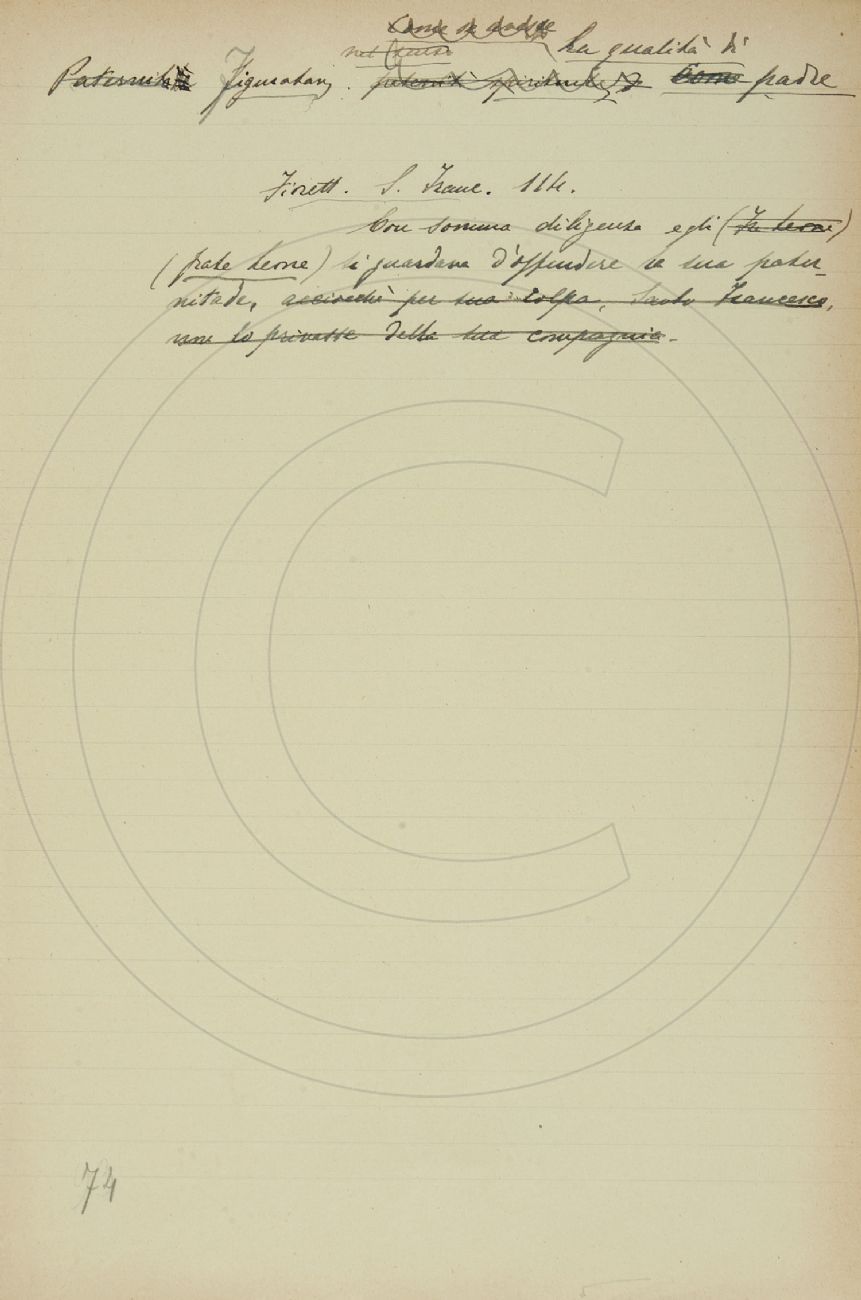 ha qualità di
Paternità Figuratam. paternità spirituale Come padre
Fiorett. S. Franc. 114.
Con somma diligenza egli (Fr. Leone)
(frate Leone) si guardava d'offendere la sua pater-
nitade, acciocchè per sua colpa, Santo Francesco,
non lo privasse della sua compagnia.
74